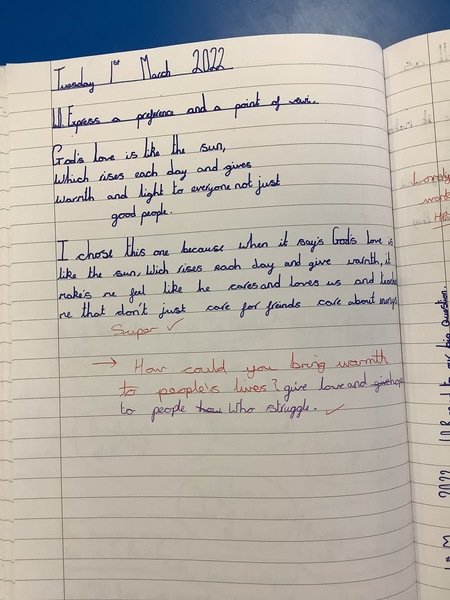 Tuesday 1st March 2022
W. Express a preference and a point of veiw.
God's love is like the sun,
Which rises each day and gives
warmth and light to everyone not just
good people.
I chose this one because when it say's God's love is
like the sun. Wich rises each day and give warmth, it
make's me feel like he cares and loves us and
me that don't just care for friends care about
Super ✓
→ How could you bring warmth
to people's lives? give love and give hope
to people how Who struggle. ✓
Lovely
work
HP
big question.
2022